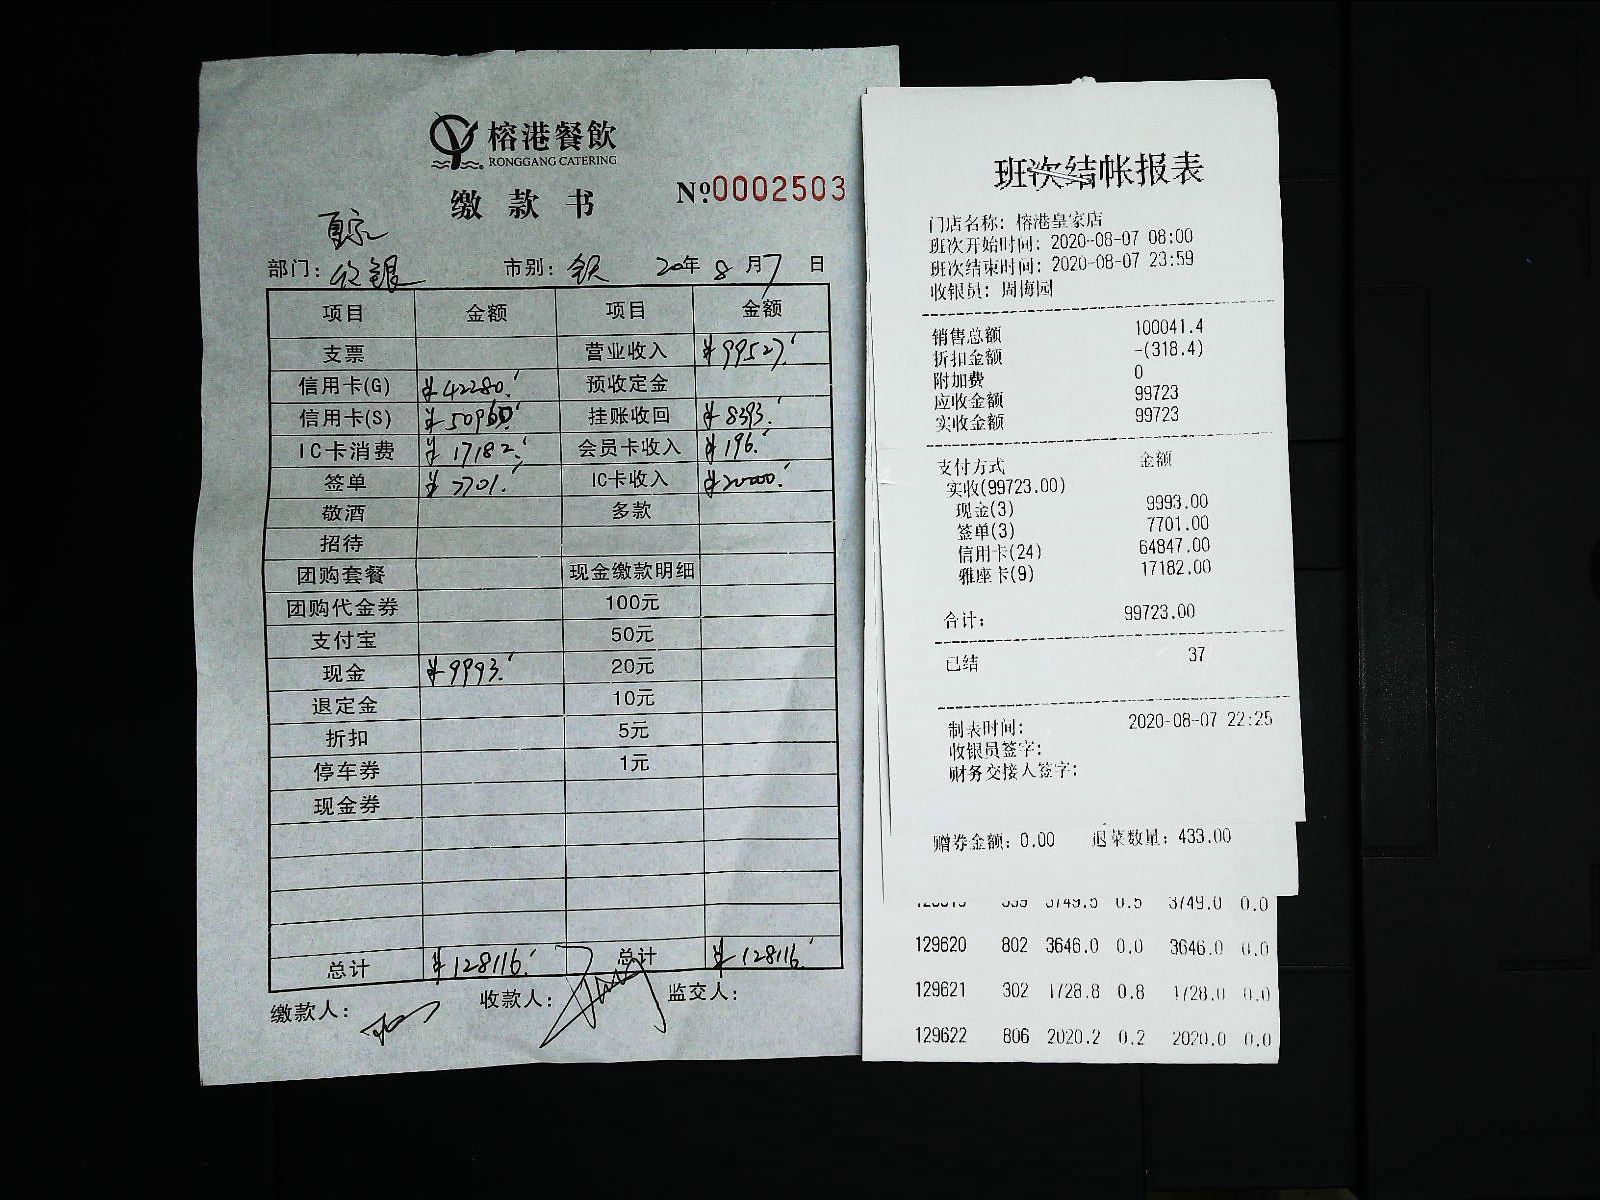 榕港餐飲
RONGGANG CATERING
缴款书
№0002503
皇家
部门: 收银 市别: 全天 2020年8月7日
项目 金额 项目 金额
支票 营业收入 ¥99527.
信用卡(G) ¥42280. 预收定金
信用卡(S) ¥50960. 挂账收回 ¥8393.
IC卡消费 ¥17182. 会员卡收入 ¥196.
签单 ¥7701. IC卡收入 ¥20000.
敬酒 多款
招待
团购套餐 现金缴款明细
团购代金券 100元
支付宝 50元
现金 ¥9993. 20元
退定金 10元
折扣 5元
停车券 1元
现金券
总计 ¥128116. 总计 ¥128116.
缴款人: 收款人: 监交人:
班次结帐报表
门店名称: 榕港皇家店
班次开始时间: 2020-08-07 08:00
班次结束时间: 2020-08-07 23:59
收银员: 周梅园
销售总额 100041.4
折扣金额 -(318.4)
附加费 0
应收金额 99723
实收金额 99723
支付方式 金额
实收(99723.00)
现金(3) 9993.00
签单(3) 7701.00
信用卡(24) 64847.00
雅座卡(9) 17182.00
合计: 99723.00
已结 37
制表时间: 2020-08-07 22:25
收银员签字:
财务交接人签字:
赠券金额: 0.00 退菜数量: 433.00
3749.5 0.5 3749.0 0.0
129620 802 3646.0 0.0 3646.0 0.0
129621 302 1728.8 0.8 1728.0 0.0
129622 806 2020.2 0.2 2020.0 0.0